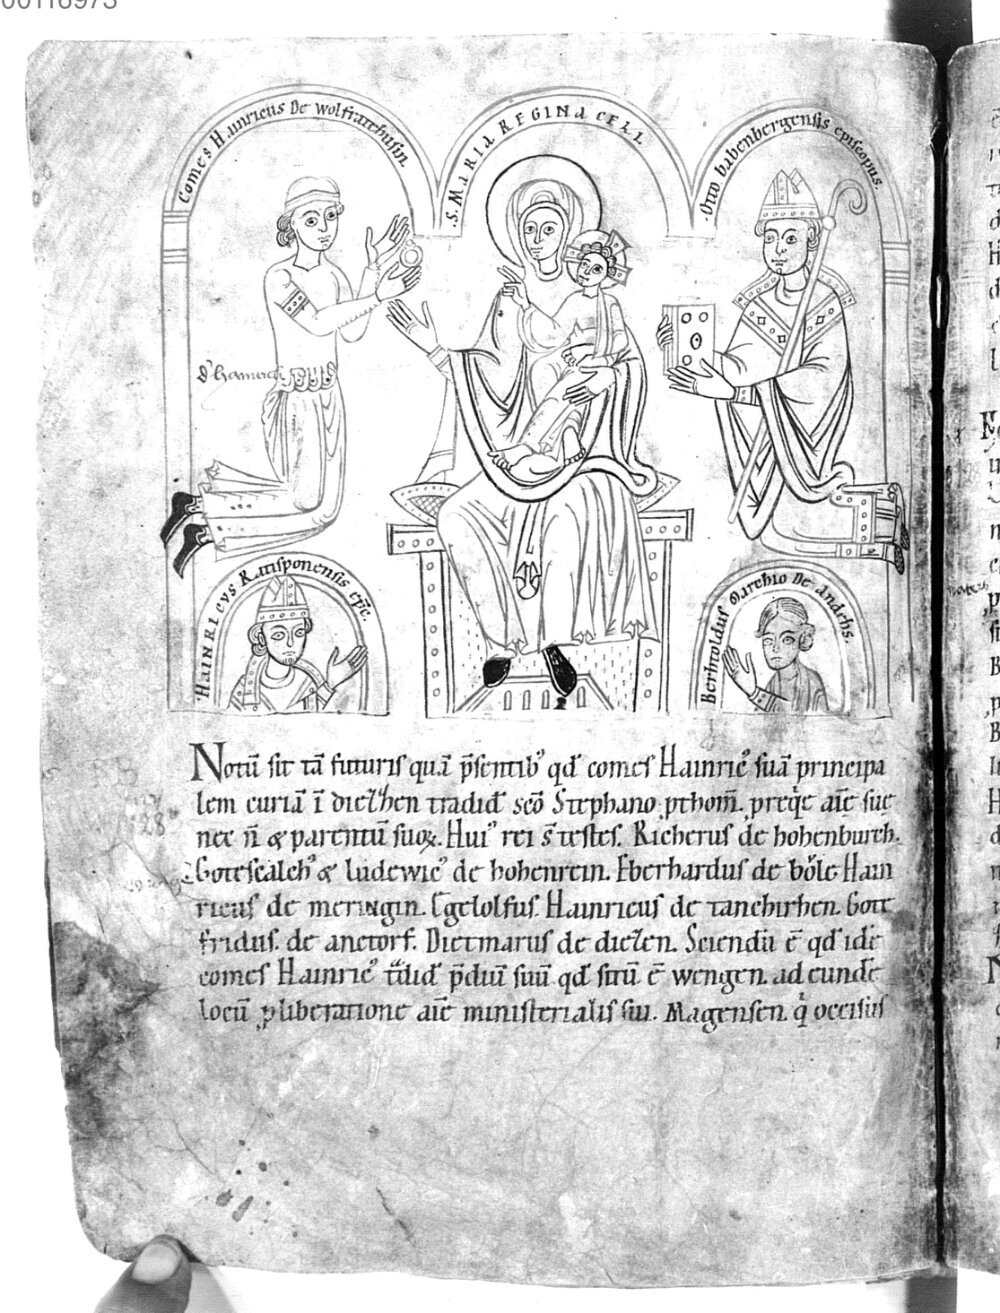 00116973
Comes Hainricus De wolfratehusin.
.S. MARIA REGINA CELI
.Otto babenbergensis episcopus.
HAINRICVS Ratisponensis epc̄.
Berhtoldus Marchio De andehs.
Notū sit tā futuris quā p̄sentib⁹ qđ comes Hainric⁹ suā principa
lem curiā ī diezhen tradid̄ sc̄o Stephano
nec n̄ & parentū suoꝝ. Hui⁹ rei s̄ testes. Richerus de hohenburch.
Gotescalch⁹ & ludewic⁹ de hohenrein. Eberhardus de Hain
ricus de meringin. Egelolfus. Hainricus de tanchirhen. Gott
fridus. de anctorf. Dietmarus de diezen. Sciendū ē qđ idē
comes Hainric⁹ p̄diū suū qđ sitū ē wengen. ad eundē
locū ꝓ liberatione aīe ministerialis sui. Magensen. q̇ occisus